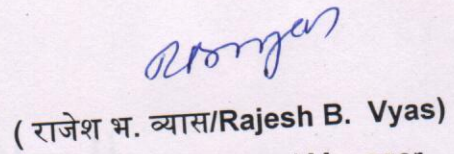 ( राजेश भ. व्यास/Rajesh B. Vyas)